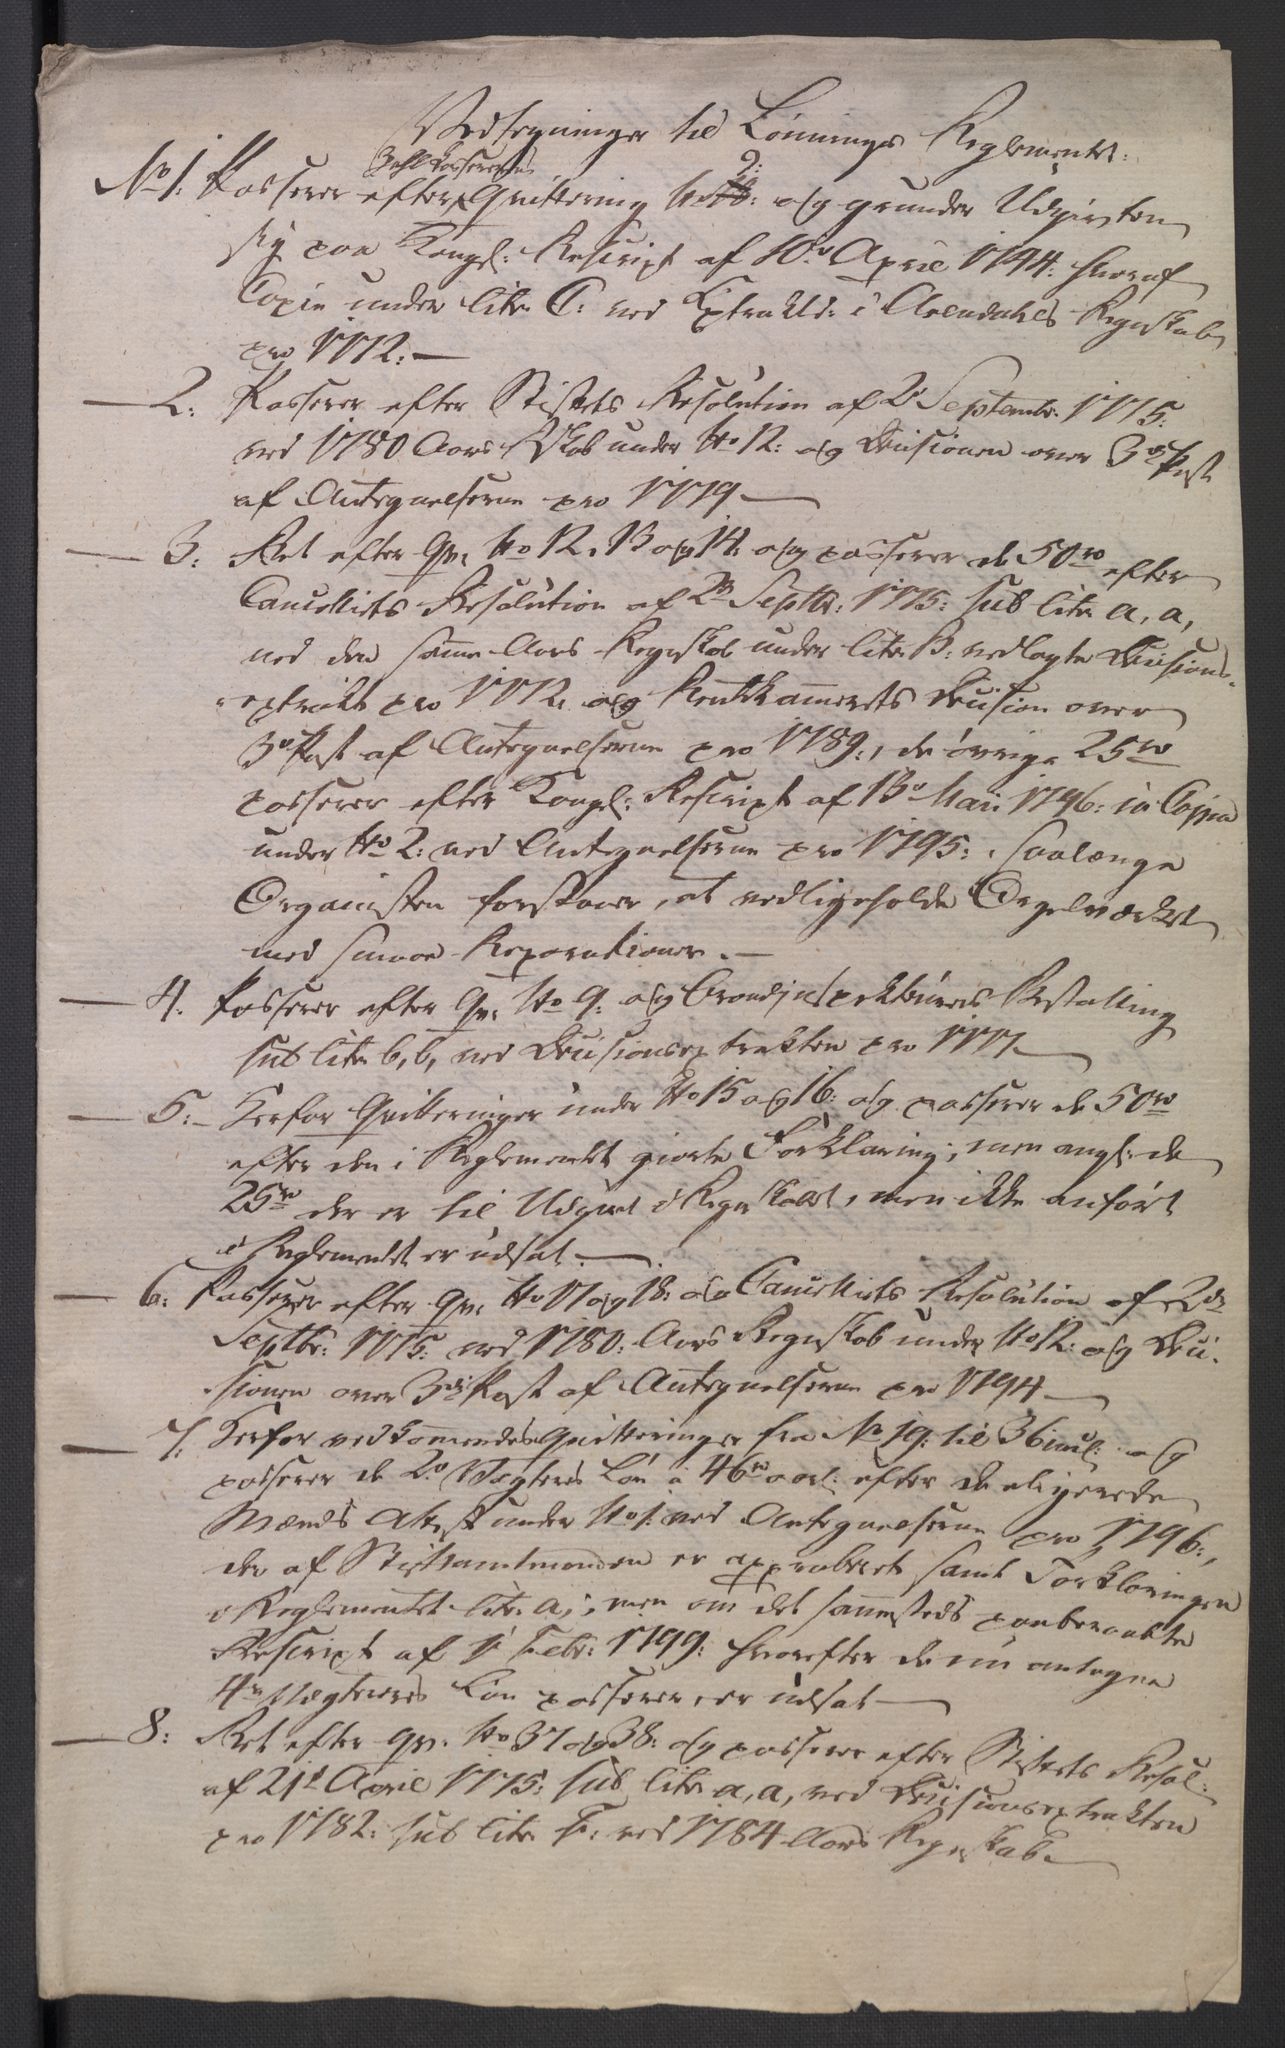 Vedtegninger til Lønnings Reglementet:
No 1. Passerer efter Zahlkassererens Qvittering No 2: og grunder Udgivten
sig paa Kongel: Rescript af 10de April 1744: hvoraf
Copie under Litr. C: ved Extrakts: i Arendahls Regnskab
pro 1772. —
— 2: Passerer efter Stiftets Resolution af 2d Septembr. 1775:
ved 1780 Aars R/skab under No 12: og Decisionen over 3die Post
af Antegnelserne pro 1779 —
— 3: Ret efter Qv. No 12, 13 og 14. og passerer de 50 rd efter
Cancelliets Resolution af 2d Septbr: 1775: sub Litr. a, a,
ved den samme Aars Regnskab under Litr. B: vedlagte Decisions-
extrakt pro 1772. og Rentekammerets Decision over
3die Post af Antegnelserne pro 1789:, de øvrige 25 rd
passerer efter Kongel: Rescript af 13de Maii 1796: in Copia
under No 2: ved Antegnelserne pro 1795:, saalænge
Organisten forskaner, at vedligeholde Orgelværket
med smaae Reparationer. —
— 4. Passerer efter Qv. No 9: og Brandinspekteurens Bestalling
sub Litr. b, b, ved Decisionsextrakten pro 1777
— 5: Herfor Qvitteringer under No 15 og 16: og passerer de 50 rd
efter den i Reglementet giorte Forklaring; men angl: de
25 rd der er til Udgivt i Regnskabet, men ikke anført
i Reglementet er udsat —
— 6: Passerer efter Qv. No 17 og 18: og Cancelliets Resolution af 2d
Septbr: 1775: ved 1780: Aars Regnskab under No 12: og Deci-
sionen over 3die Post af Antegnelserne pro 1794 —
— 7. Herfor vedkommendes Qvitteringer fra No 19: til 36 incl: og
passerer de 2de Vægteres Løn a 46 rd aarl: efter de eligerede
Mænds Attest under No 1: ved Antegnelserne pro 1796:,
der af Stiftamtmanden er approberet samt Forklaringen
i Reglementet Litr. a,; men om det sammesteds paaberaabte
Rescript af 1ste Febr: 1799: hvorefter de nu antagne
4re Vægteres Løn passerer, er udsat —
— 8: Ret efter Qv. No 37 og 38: og passerer efter Stiftets Resol:
af 21de April 1775: sub Litr. a, a, ved Decisionsextrakten
pro 1782: sub Litr. F: ved 1784 Aars Regnskab. —